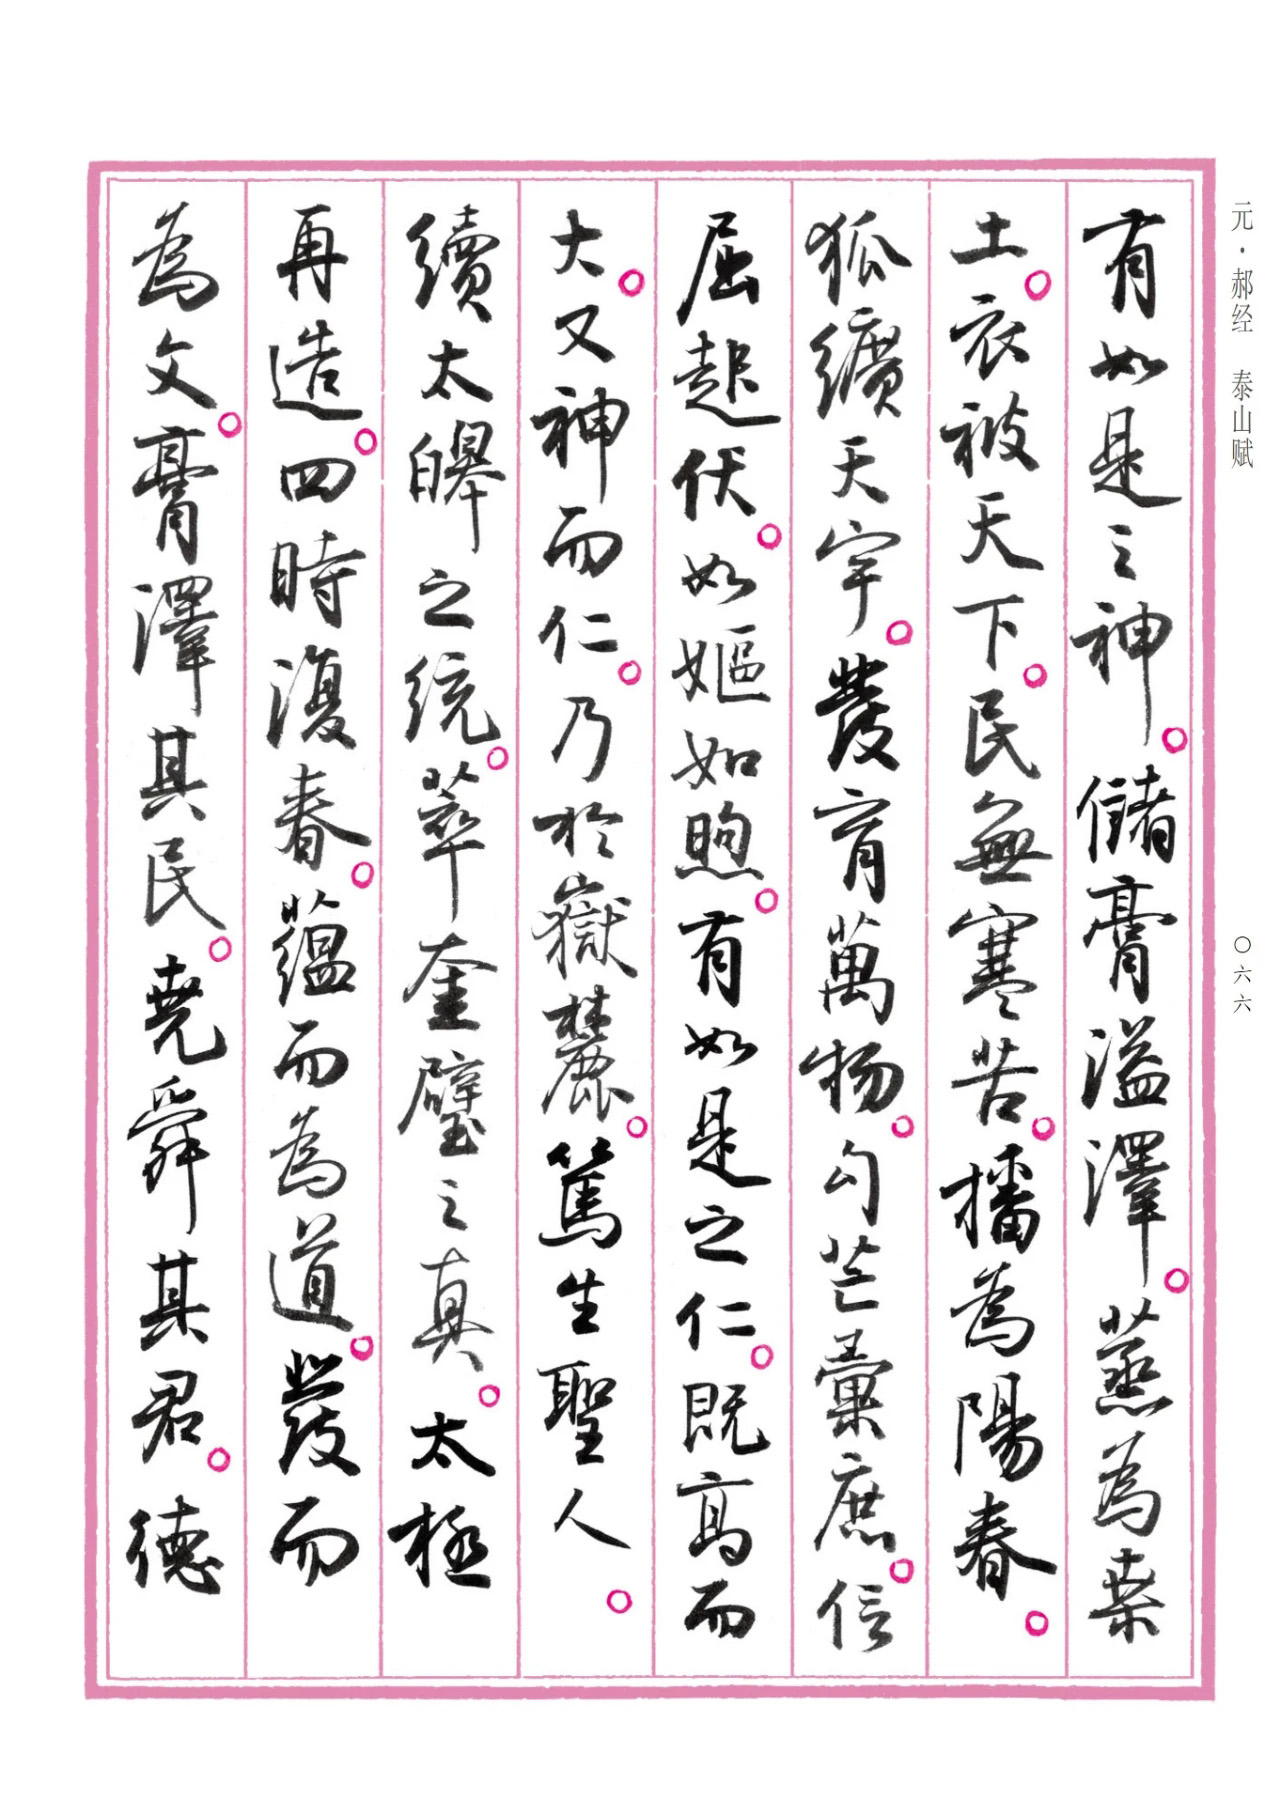 元·郝经 泰山赋
〇六六
有如是之神。儲膏溢澤。蒸為桑
土。衣被天下。民無寒苦。播為陽春。
狐纊天宇。發育萬物。勾芒彙庶。信
屈起伏。如嫗如煦。有如是之仁。既高而
大。又神而仁。乃於嶽麓。篤生聖人。
續太皞之统。萃奎璧之真。太極
再造。四時復春。蕴而為道。發而
為文。膏澤其民。堯舜其君。德